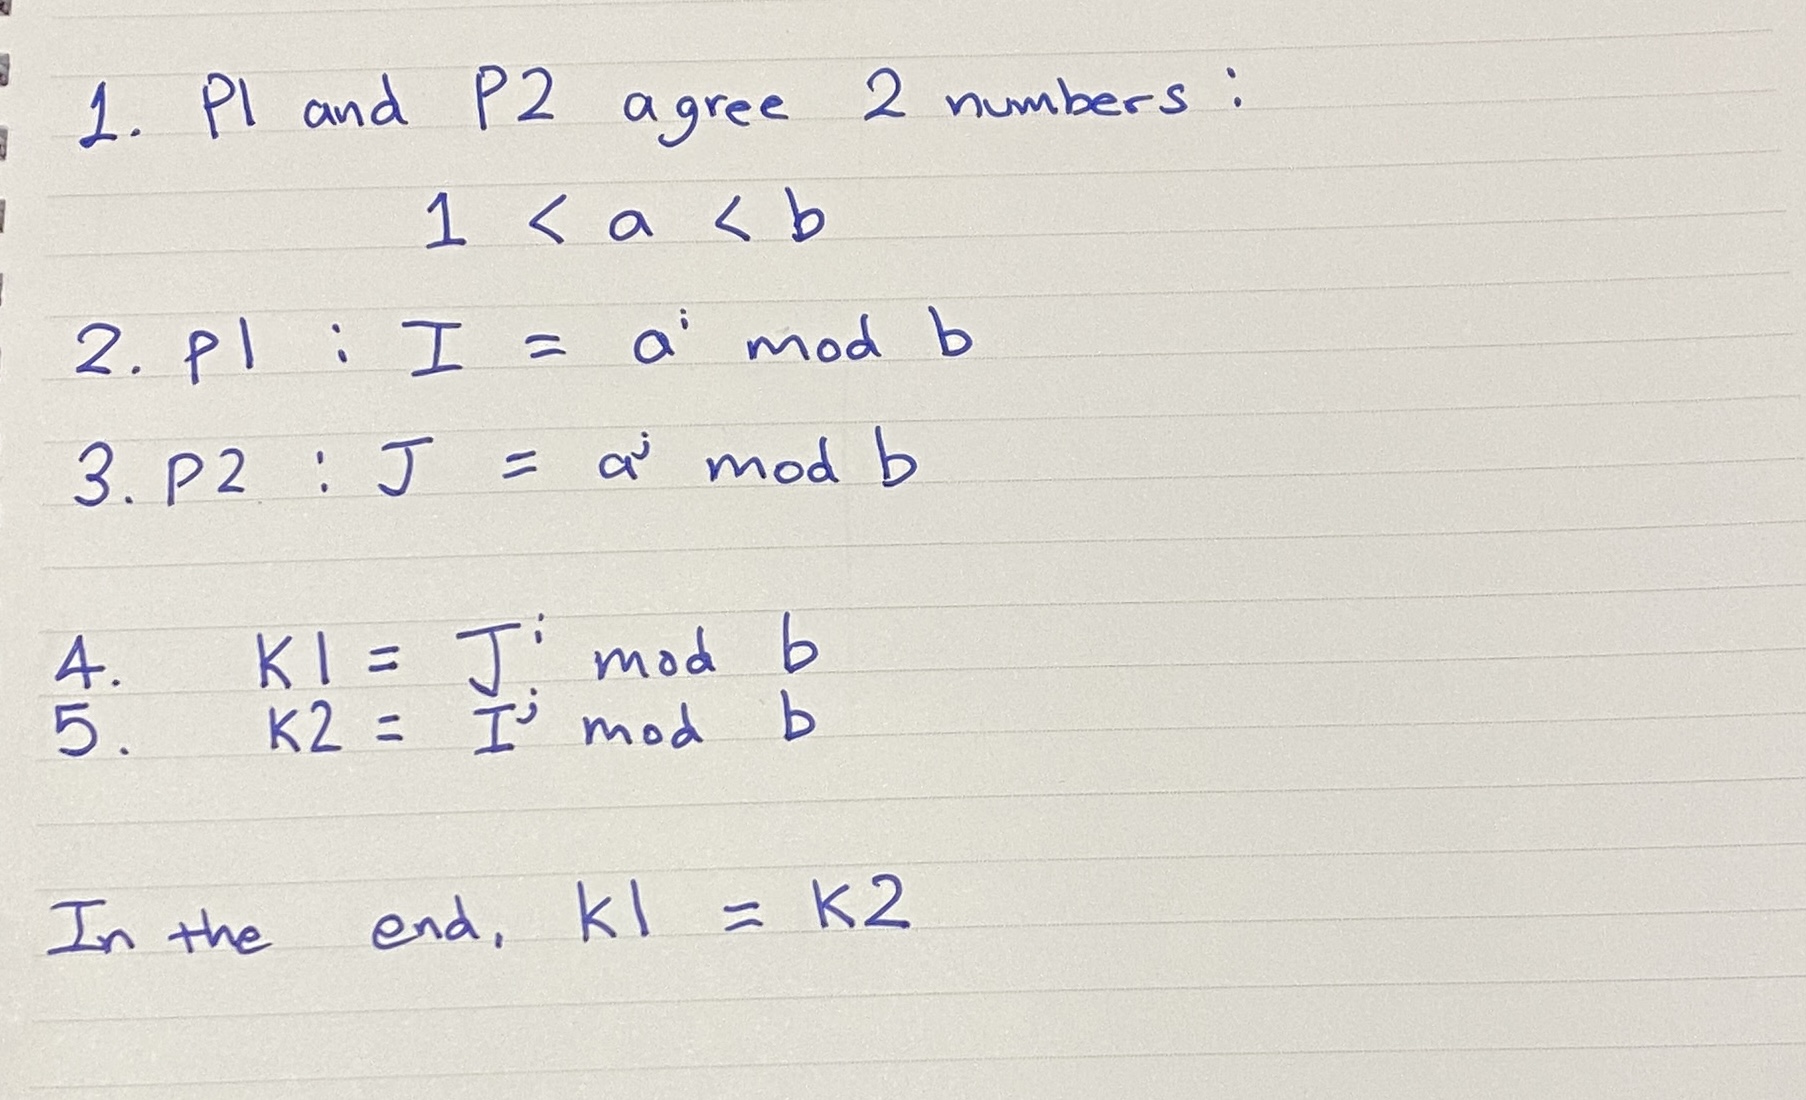 1. P1 and P2 agree 2 numbers :
1 < a < b
2. p1 : I = aⁱ mod b
3. p2 : J = aʲ mod b
4. K1 = Jⁱ mod b
5. K2 = Iʲ mod b
In the end, k1 = K2